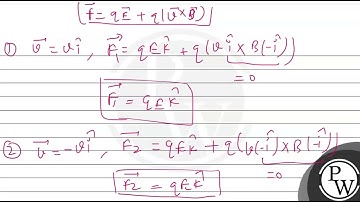 f⃗ = qE⃗ + q(v⃗×B⃗)
① v⃗ = vî, F₁⃗ = qEk̂ + q(vî × B(-î))
= 0
F₁⃗ = qEk̂
② v⃗ = -vî, F₂⃗ = qEk̂ + q(v(-î) × B(-î))
= 0
F₂⃗ = qEk̂
PW